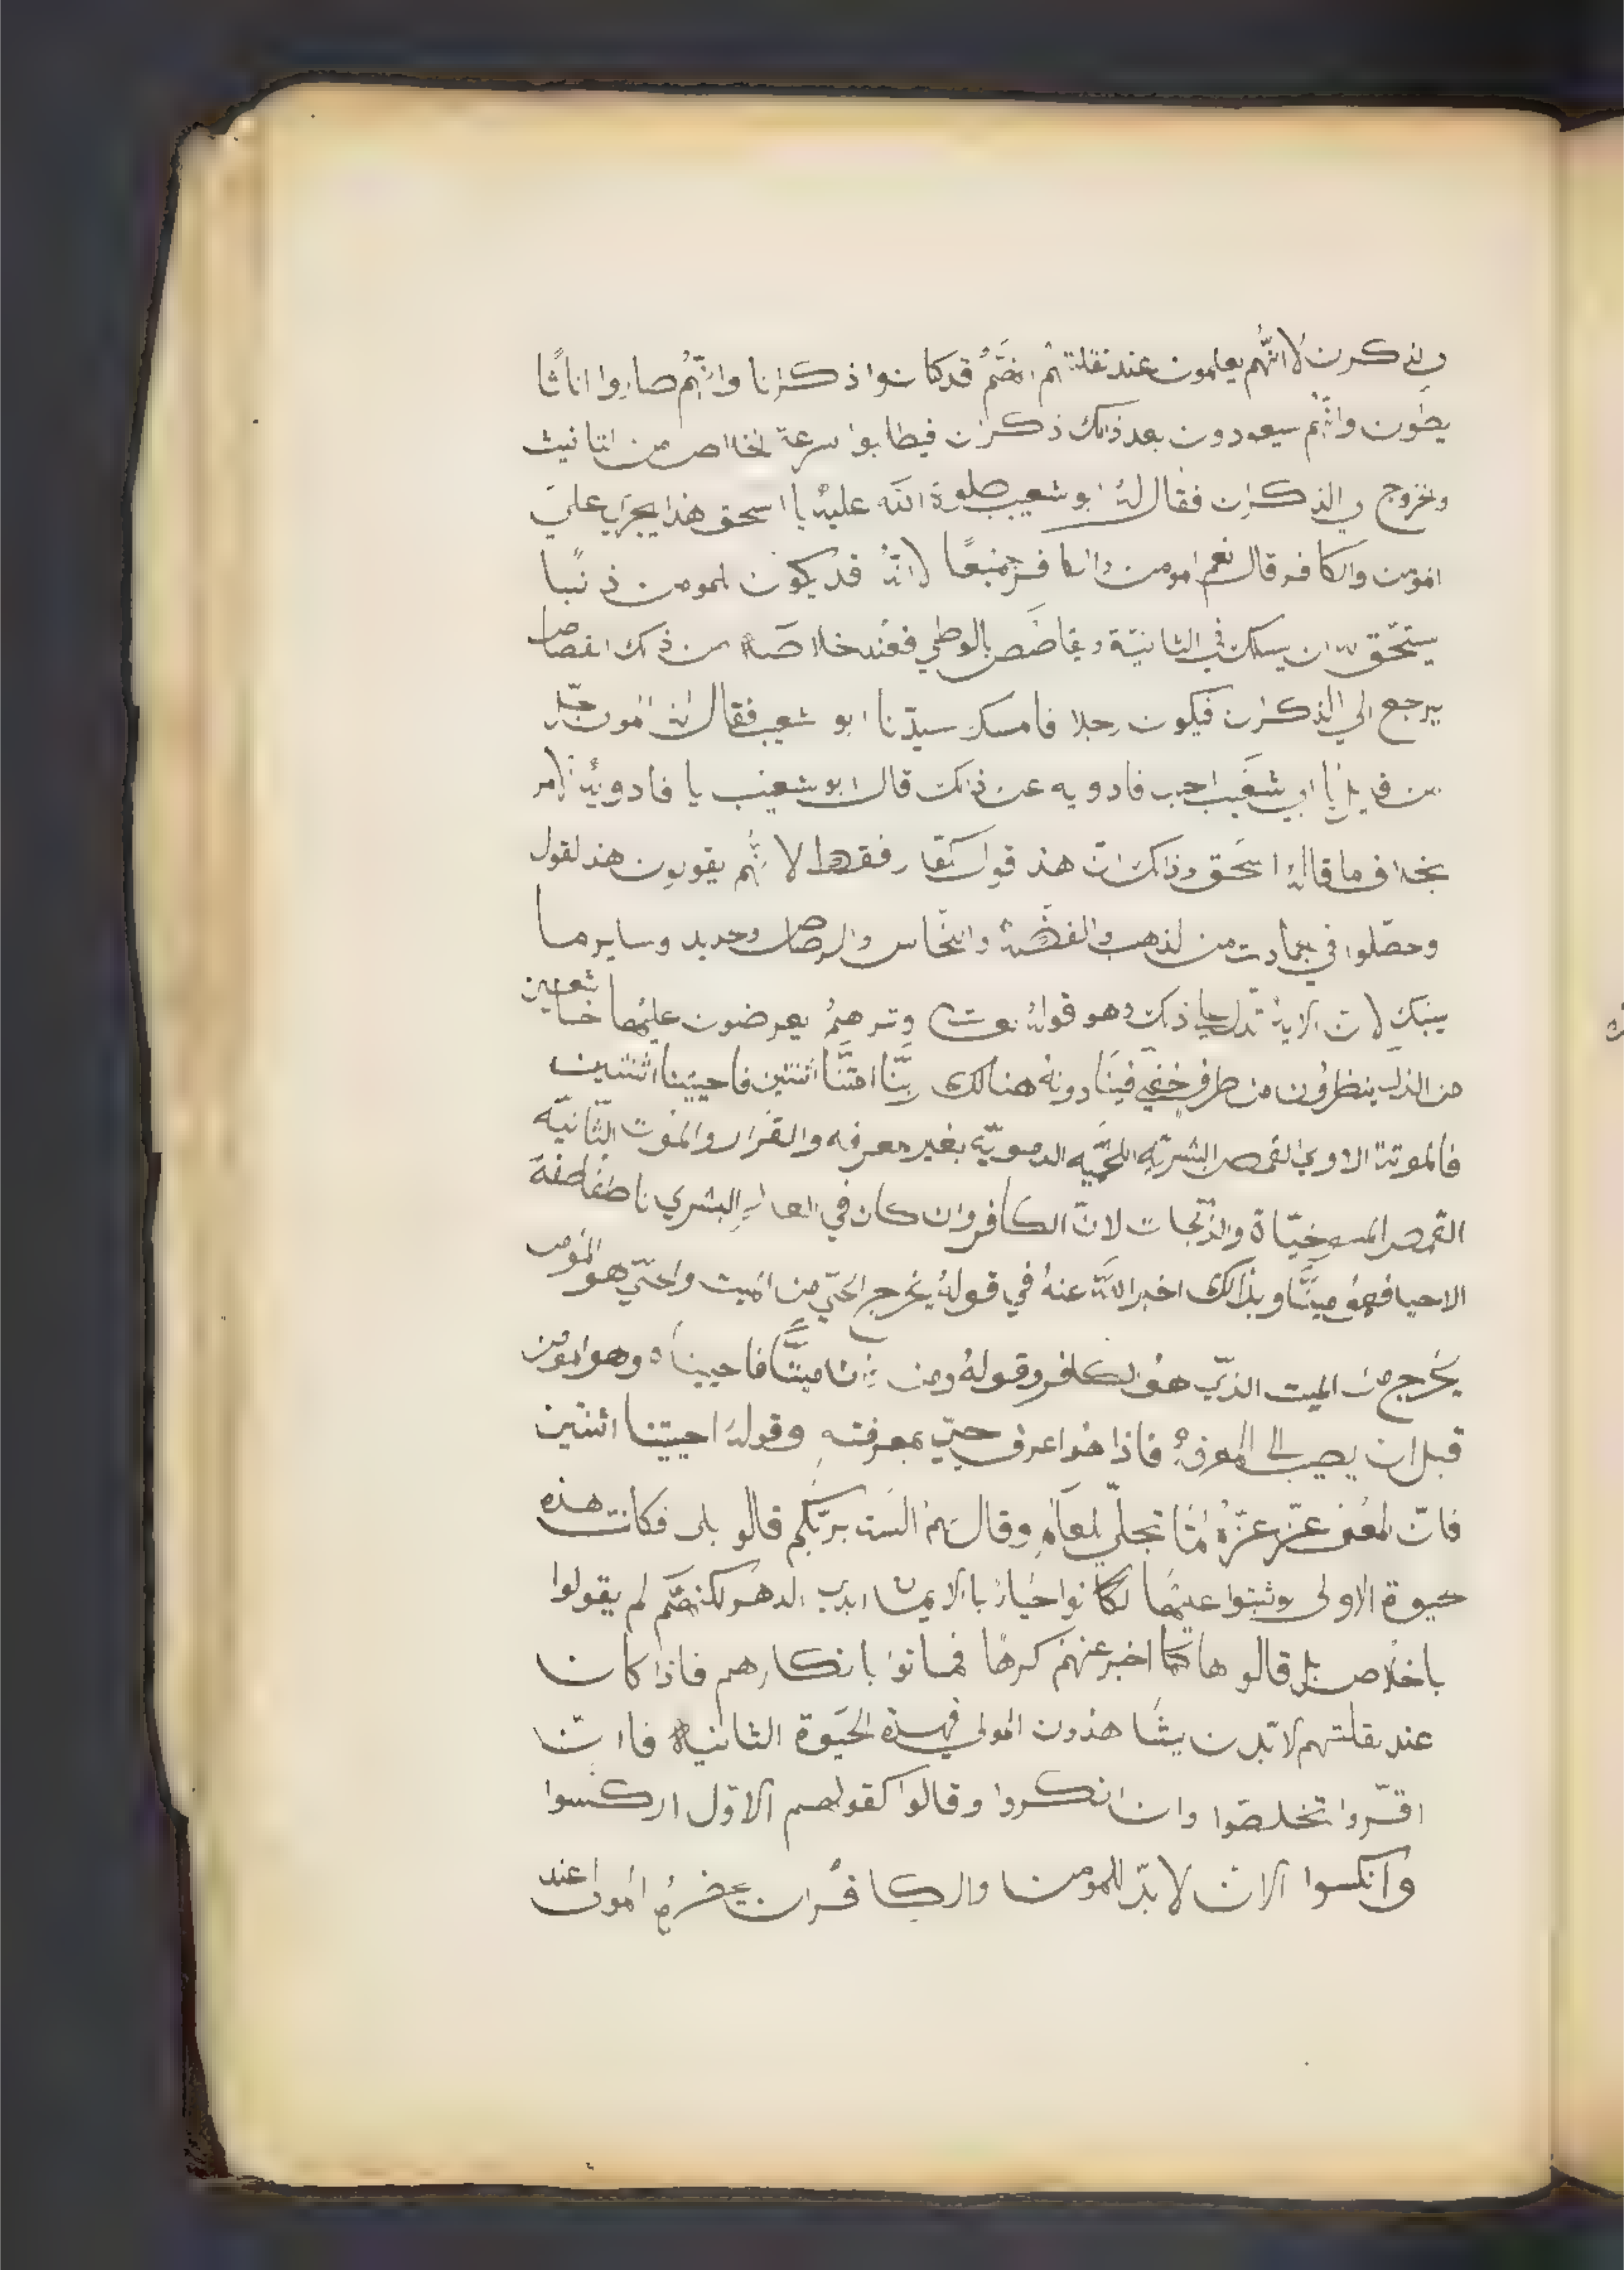 لانهم يعلمون عند نقلتهم انهم قد كانوا ذكرانا وانهم صاروا اناثا
يطون وانهم سيعودون بعد ذلك ذكران فيطلبوا سرعة الخلاص من التانيث
وخروج في الذكران فقال له ابو شعيب صلوة الله عليه يا اسحق هذا يجرا به علي
المومن والكافر قال نعم المومن والكافر جميعا لانه قد يكون للمومن ذنبا
يستحق ان يسلك في الثانية ويقاصص بالوطي فعند خلاصه من ذلك القصاص
يرجع الي الذكران فيكون رجلا فامسك سيدنا ابو شعيب فقال
ابي شعيب اجب فادويه عن ذلك قال ابو شعيب يا فادويه الامر
بخلاف ما قاله اسحق وذلك ان هذا قول كفار فقط لا نهم يقولون هذا القول
وحصلوا في جمادت من لذهب والفضة والنحاس والرصاص وحديد وساير ما
ينبك لان الاية تدل علي ذلك وهو قوله تعت وترهم يعرضون عليها خاشعين
من الذل ينظرون من طرف خفي فينادونه هنالك ربنا امتنا اثنتين فاحييتنا اثنتين
فالموتة الاولي القمص البشرية اللحمية الدموية بغير معرفه والقرار والموت الثانيه
القمص المسوخياة والزنجات لان الكافر وان كان في البشري ناطقا صفة
الاحيا فهو ميتا وبذالك اخبر الله عنه في قوله يخرج الحي من الميت والحي هو المومن
يخرج من الميت الذي هو الكافر وقوله ومن كان ميتا فاحييناه وهو المومن
قبل ان يصيب الى المعرفه فاذا هوا عرف حيي بمعرفته وقوله احييتنا اثنتين
فان المعنى عز عزه لما تجلي للعالم وقال لهم الست بربكم قالو بلى فكانت هذه
حيوة الاولى وثبتوا عليها لكانوا احياء بالايمان ابدي الدهر لكنهم لم يقولوا
باخلاص بل قالوها كما اخبر عنهم كرها فماتوا بانكارهم فاذا كان
عند نقلتهم لا بد ن يشاهدون المولي فهذه الحيوة الثانياه فاان
اقروا تخلصوا وان انكروا وقالوا كقولهم الاول اركسوا
وانكسوا الان لا بد للمومن والكافر ان يحضره المولى عند